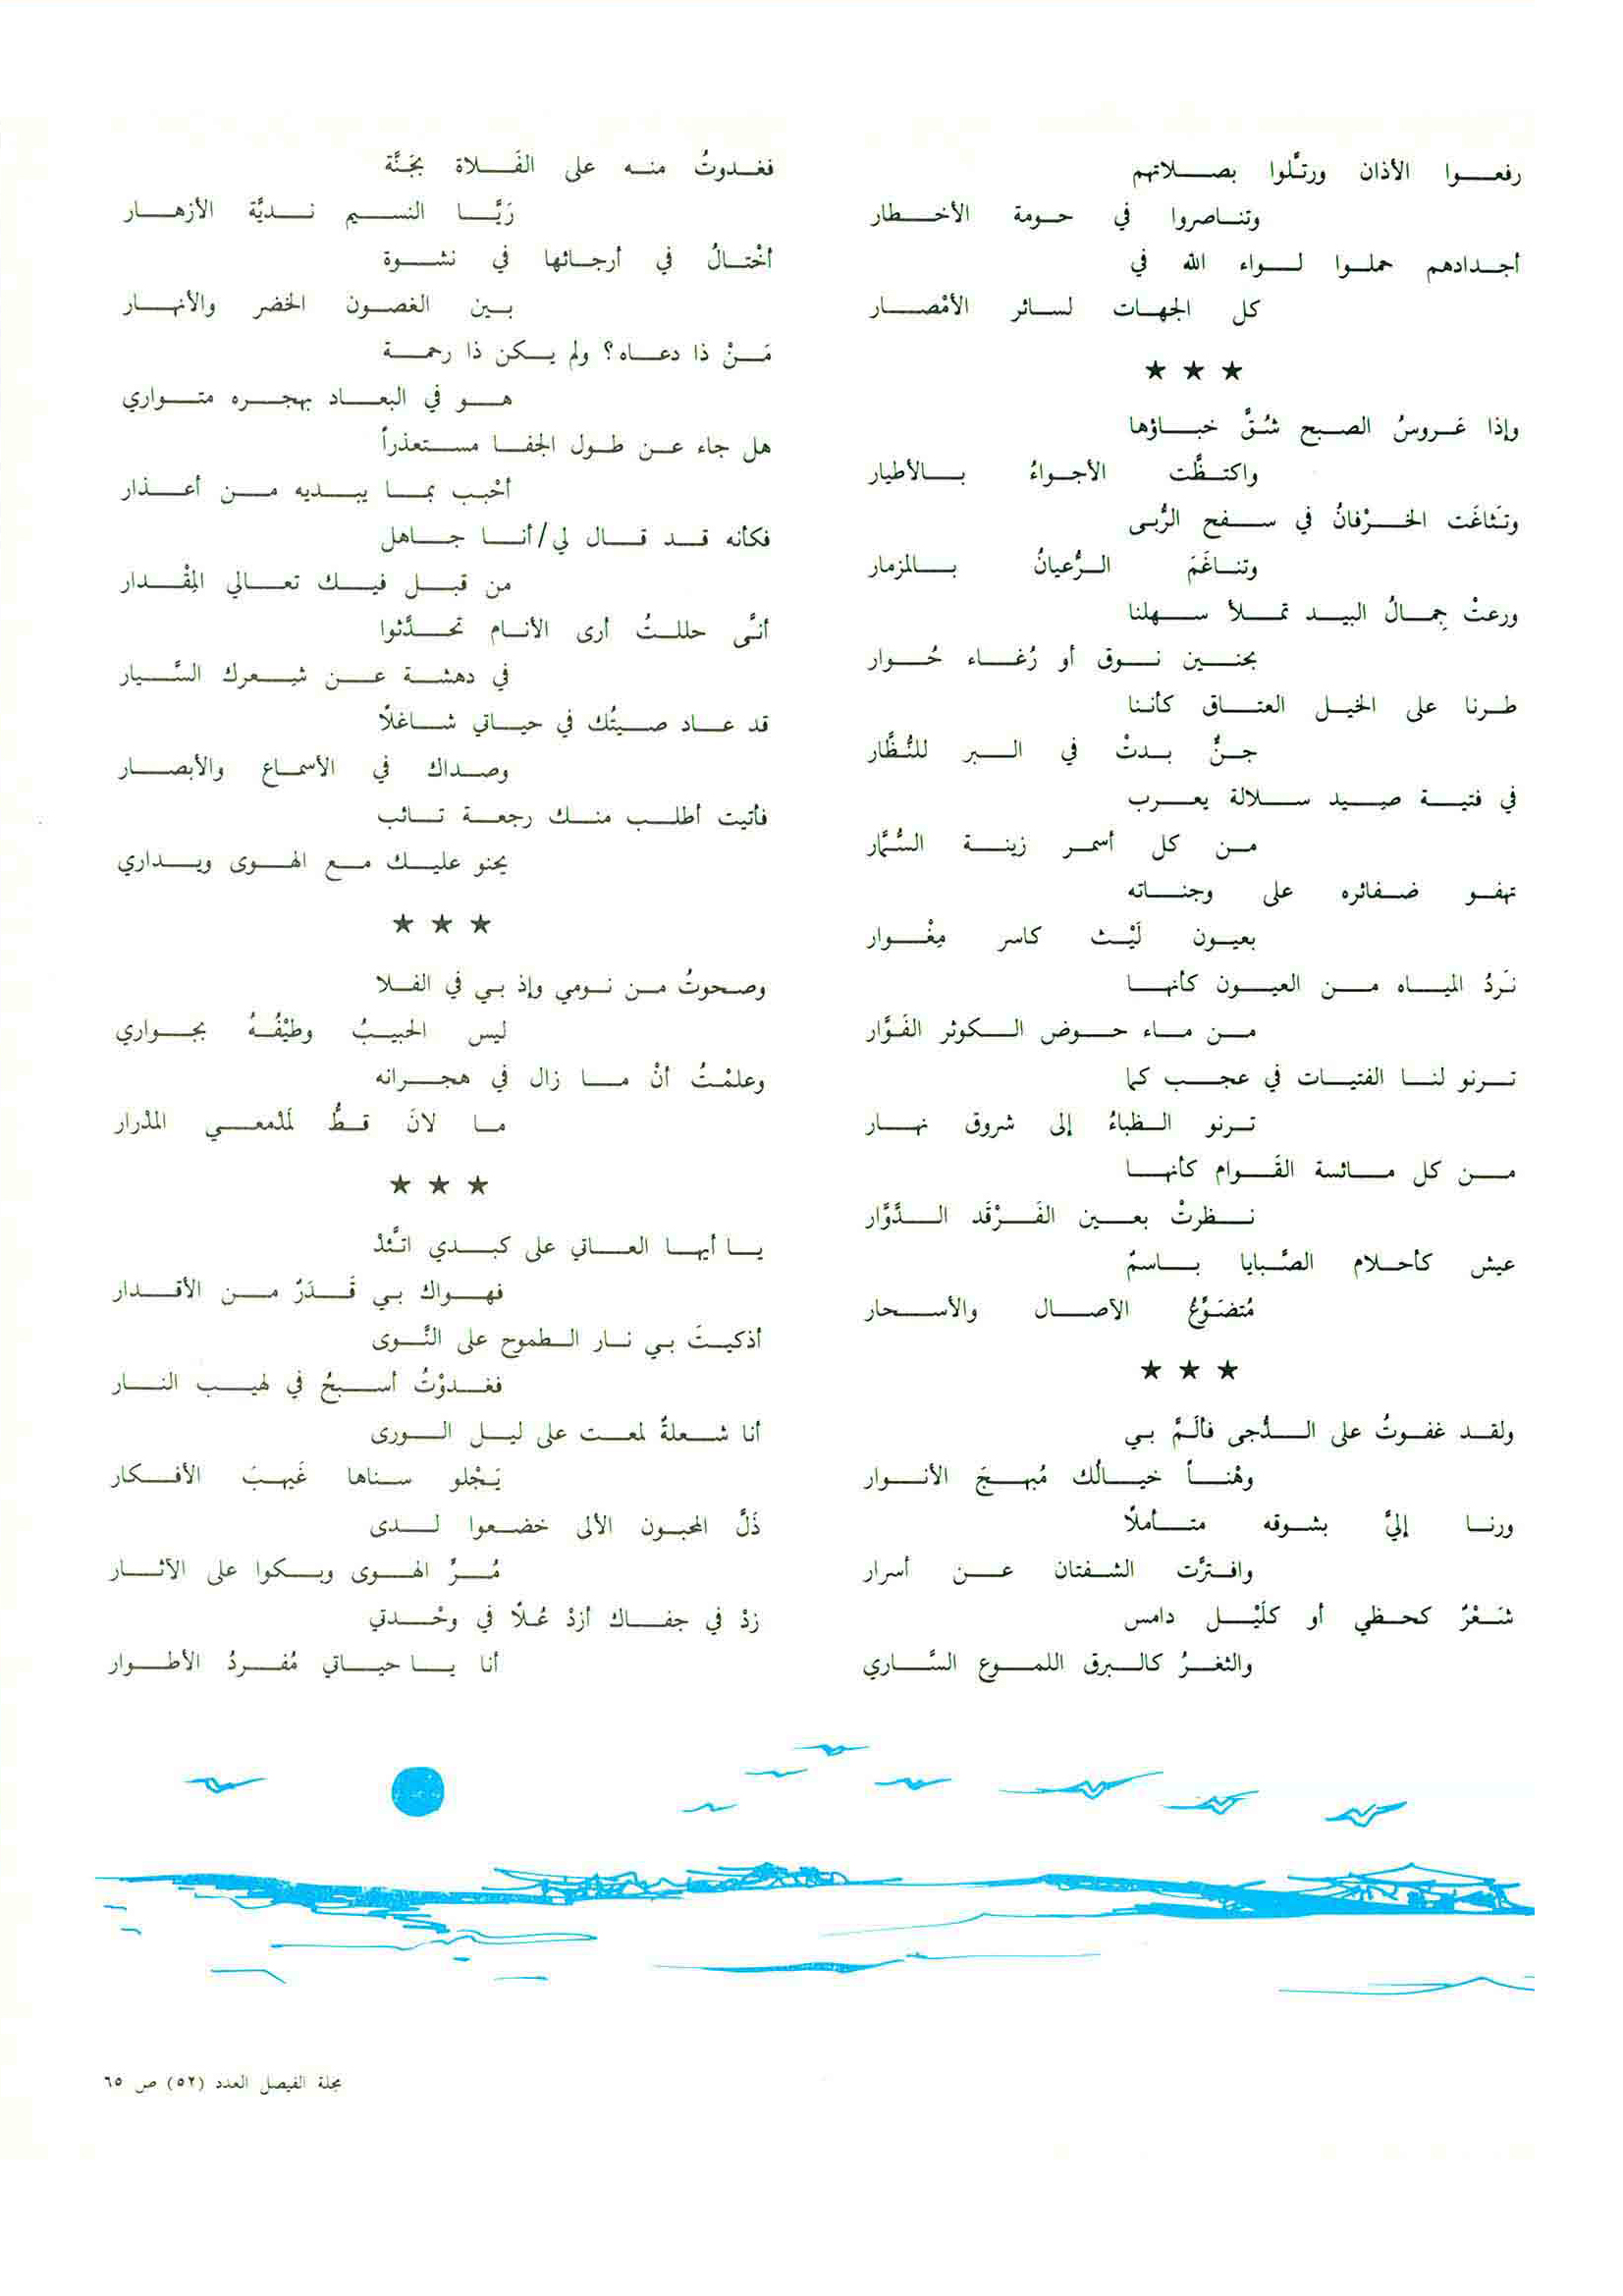 رفعوا الأذان ورتَّلوا بصلاتهم
وتناصروا في حومة الأخطار
أجدادهم حملوا لواء الله في
كل الجهات لسائر الأمْصار
★ ★ ★
وإذا عَروسُ الصبح شُقَّ خباؤها
واكتظَّت الأجواءُ بالأطيار
وتَثاغَت الخرْفانُ في سفح الرُّبى
وتناغَمَ الرُّعيانُ بالمزمار
ورعتْ جِمالُ البيد تملأ سهلنا
بحنين نوق أو رُغاء حُوار
طرنا على الخيل العتاق كأننا
جنٌّ بدتْ في البر للنُّظَّار
في فتية صِيد سلالة يعرب
من كل أسمر زينة السُّمَّار
تهفو ضفائره على وجناته
بعيون لَيْث كاسر مِغْوار
نَردُ المياه من العيون كأنها
من ماء حوض الكوثر الفَوَّار
ترنو لنا الفتيات في عجب كما
ترنو الظباءُ إلى شروق نهار
من كل مائسة القَوام كأنها
نظرتْ بعين الفَرْقَد الدَّوَّار
عيش كأحلام الصَّبايا باسمٌ
مُتضَوِّعُ الآصال والأسحار
★ ★ ★
ولقد غفوتُ على الدُّجى فألَمَّ بي
وهْناً خيالُك مُبهجَ الأنوار
ورنا إليَّ بشوقه متأملًا
وافترَّت الشفتان عن أسرار
شَعْرٌ كحظي أو كلَيْل دامس
والثغرُ كالبرق اللموع السَّاري
فغدوتُ منه على الفَلاة بجَنَّة
رَيَّا النسيم نديَّة الأزهار
أخْتالُ في أرجائها في نشوة
بين الغصون الخضر والأنهار
مَنْ ذا دعاه؟ ولم يكن ذا رحمة
هو في البعاد بهجره متواري
هل جاء عن طول الجفا مستعذراً
أحْبب بما يبديه من أعذار
فكأنه قد قال لي/أنا جاهل
من قبل فيك تعالي المِقْدار
أنَّى حللتُ أرى الأنام تحدَّثوا
في دهشة عن شعرك السَّيار
قد عاد صيتُك في حياتي شاغلًا
وصداك في الأسماع والأبصار
فأتيت أطلب منك رجعة تائب
يحنو عليك مع الهوى ويداري
★ ★ ★
وصحوتُ من نومي وإذ بي في الفلا
ليس الحبيبُ وطيْفُهُ بجواري
وعلمْتُ أنْ ما زال في هجرانه
ما لانَ قطُّ لمَدْمعي المدْرار
★ ★ ★
يا أيها العاتي على كبدي اتَّئدْ
فهواك بي قَدَرٌ من الأقدار
أذكيتَ بي نار الطموح على النَّوى
فغدوْتُ أسبحُ في لهيب النار
أنا شعلةٌ لمعت على ليل الورى
يَجْلو سناها غَيهبَ الأفكار
ذَلَّ المحبون الألى خضعوا لدى
مُرِّ الهوى وبكوا على الآثار
زدْ في جفاك أزدْ عُلًا في وحْدتي
أنا يا حياتي مُفردُ الأطوار
مجلة الفيصل العدد (٥٢) ص ٦٥